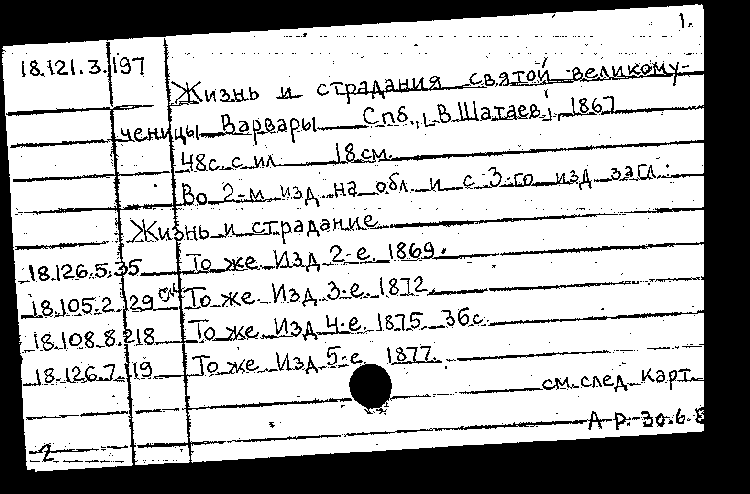 1.
18.121.3.197
Жизнь и страдания святой великому-
ченицы Варвары Спб., В. Шатаев, 1867
48с. с ил 18см.
Во 2-м изд на обл. и с 3-го изд загл.:
Жизнь и страдание
18.126.5.35 То же. Изд 2-е. 1869.
18.105.2.129 То же. Изд 3-е. 1872.
18.108.8.218 То же. Изд 4-е. 1875 36с.
18.126.7.119 То же. Изд 5-е 1877.
см. след. карт.
А Р. 30.6.
2